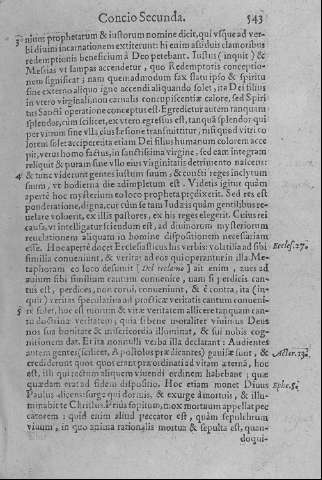 Concio Secunda. 543
3 nium prophetarum & iustorum nomine dicit, qui vsque ad ver-
bi diuini incarnationem extiterunt: hi enim assiduis clamoribus
redemptionis beneficium à Deo petebant. Iustus (inquit) &
Messias vt lampas accendetur, quo Redemptoris conceptio-
nem significat: nam quemadmodum fax statu ipso & spiritu
sine externo aliquo igne accendi aliquando solet, ita Dei filius
in vtero virginali non carnalis concupiscentiæ calore, sed Spiri-
tus Sancti operatione conceptus est. Egredietur autem tanquam
splendor, cùm scilicet, ex vtero egressus est, tanquã splendor qui
per vitrum sine vlla eius læsione transmittitur, nisi quòd vitri co
lorem solet accipere: ita etiam Dei filius humanum colorem acce
pit, verus homo factus, in sanctissima virgine, sed eam integram
reliquit & puram sine vllo eius virginitatis detrimento nascens:
4 & tunc viderunt gentes iustum suum, & cuncti reges inclytum
suum, vt hodierna die adimpletum est. Videtis igitur quàm
apertè hoc mysterium to loco propheta prædixerit. Sed res est
ponderatione digna, cur cùm se tam Iudæis quàm gentilibus re-
uelare voluerit, ex illis pastores, ex his reges elegerit. Cuius rei
causã, vt intelligatur sciendum est, ad diuinorum mysteriorum
reuelationem aliquam in homine dispositionem necessariam
esse. Hoc apertè docet Ecclesiasticus his verbis: volatilia ad sibi Eccles. 27.
similia conueniunt, & veritas ad eos qui operantur in illa. Me-
taphoram eo loco desumit (Del reclamo) ait enim, aues ad
auium sibi similium cantum conuenire, nam si perdicis can-
tus est, perdices, non corui, conueniunt, & è contra, ita (in-
quit) veritas speculatiua ad practicæ veritatis cantum conueni-
5 re solet, hoc est morum & vitæ veritatem allicere tanquam can-
tu doctrinæ veritatem, quia libenè moraliter viuimus Deus
nos sua bonitate & misericordia illuminat, & sui nobis cog-
nitionem dat. Et ita nonnulli verba illa declarant: Audientes
autem gentes (scilicet, Apostolos prædicantes) gauisæ sunt, & Actor. 13.
crediderunt quot quot erant præordinati ad vitam æternã, hoc
est, illi qui rectum aliquem viuendi ordinem habebant: quæ
quædam erat ad fidem dispositio. Hoc etiam monet Diuus Ephe. 5.
Paulus dicens: surge qui dormis, & exurge à mortuis, & illu-
minabit te Christus. Prius sopitum, mox mortuum appellat pec
catorem: quid enim aliud peccator est, quàm sepulchrum
viuum, in quo anima rationalis mortua & sepulta est, quan-
doqui-